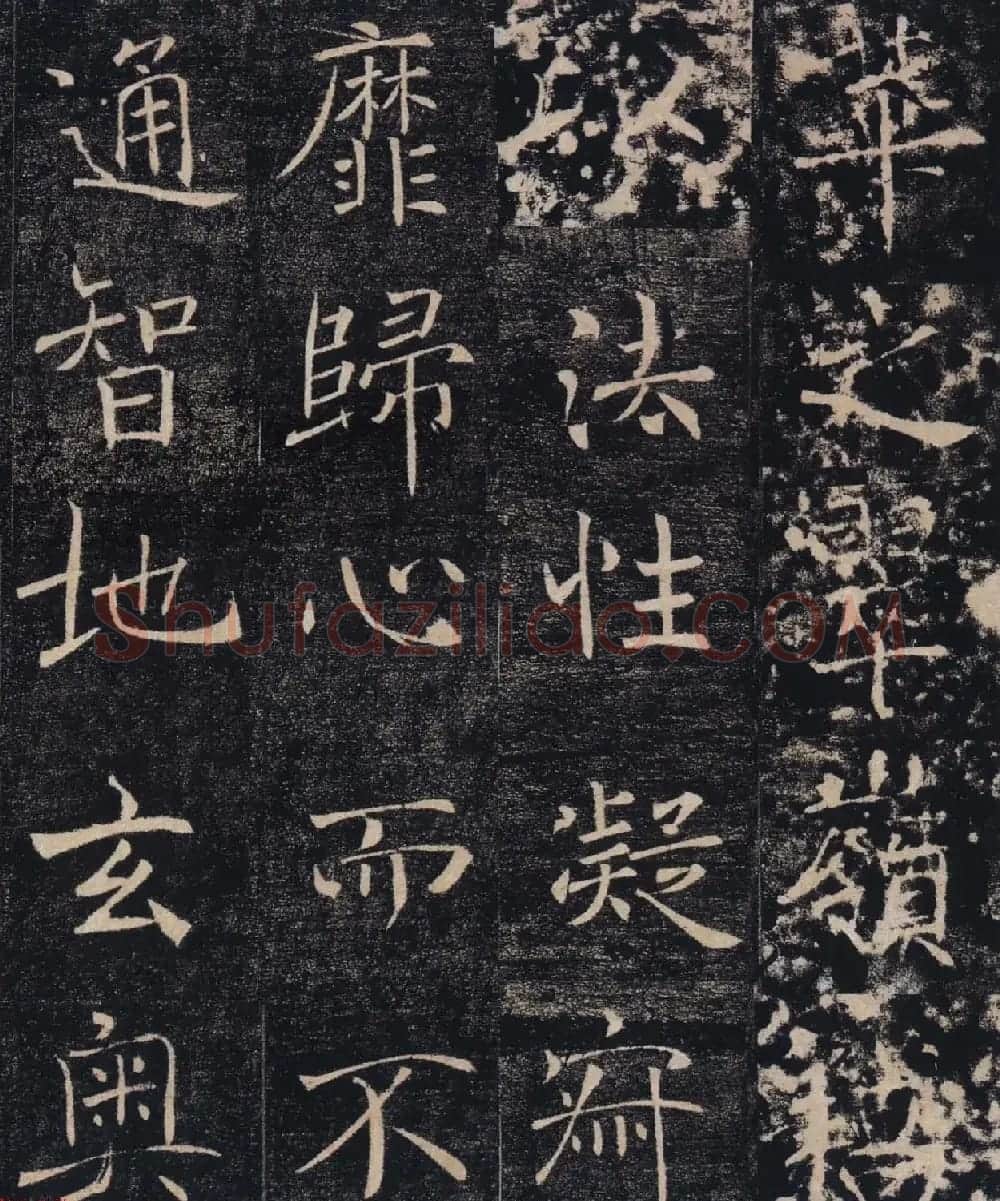 華之嶺
法性凝
靡歸心而不
通智地玄奥
Shufaziliao.COM